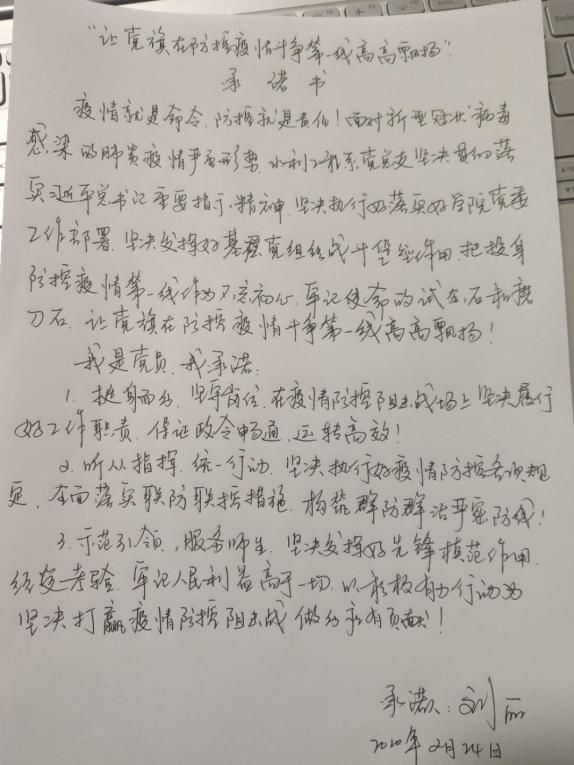 “让党旗在防控疫情斗争第一线高高飘扬”
承诺书
疫情就是命令、防控就是责任！面对新型冠状病毒
感染的肺炎疫情严峻形势、水利工程系党总支坚决贯彻落
实习近平总书记重要指示精神、坚决执行好落实好学院党委
工作部署、坚决发挥好基层党组织战斗堡垒作用、把投身
防控疫情第一线作为不忘初心、牢记使命的试金石和磨
刀石、让党旗在防控疫情斗争第一线高高飘扬！
我是党员、我承诺：
1. 挺身而出、坚守岗位、在疫情防控阻击战场上坚决履行
好工作职责、保证政令畅通、运转高效！
2. 听从指挥、统一行动、坚决执行好疫情防控各项规
定、全面落实联防联控措施、构筑群防群治严密防线！
3. 示范引领，服务师生、坚决发挥好先锋模范作用、
经受考验、牢记人民利益高于一切、以积极有力行动为
坚决打赢疫情防控阻击战做出应有贡献！
承诺人：刘丽
2020年2月24日